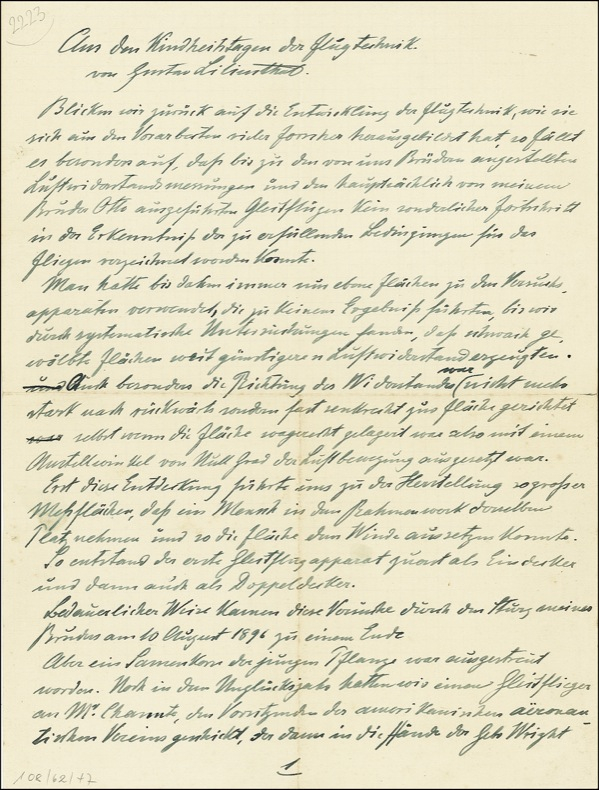 2223
Aus den Kindheitstagen der Flugtechnik.
von Gustav Lilienthal.
Blicken wir zurück auf die Entwicklung der Flugtechnik, wie sie
sich aus den Vorarbeiten vieler Forscher herausgebildet hat, so fällt
es besonders auf, daß bis zu den von uns Brüdern angestellten
Luftwiderstandsmessungen und den hauptsächlich von meinem
Bruder Otto ausgeführten Gleitflügen kein sonderlicher Fortschritt
in der Erkenntniß der zu erfüllenden Bedingungen für das
Fliegen verzeichnet worden konnte.
Man hatte bis dahin immer nur ebene Flächen zu den Versuchs
apparaten verwendet, die zu keinem Ergebniß führten, bis wir
durch systematische Untersuchungen fanden, daß schwach ge¸
wölbte Flächen weit günstigeren Luftwiderstand erzeugten.
und Auch besonders die Richtung des Widerstandes war nicht mehr
stark nach rückwärts sondern fast senkrecht zur Fläche gerichtet
selbst wenn die Fläche wagerecht gelagert war also mit einem
Anstellwinkel von Null Grad der Luftbewegung ausgesetzt war.
Erst diese Entdeckung führte uns zu der Herstellung so großer
Meßflächen, daß ein Mensch in dem Rahmenwerk derselben
Platz nehmen und so die Fläche dem Winde aussetzen konnte.
So entstand der erste Gleitflugapparat zuerst als Eindecker
und dann auch als Doppeldecker.
Bedauerlicher Weise kamen diese Versuche durch den Sturz meines
Bruders am 10 August 1896 zu einem Ende
Aber ein Samenkorn der jungen Pflanze war ausgestreut
worden. Noch in dem Unglücksjahr hatten wir einen Gleitflieger
an Mr. Chanut, den Vorsitzenden des amerikanischen aëronau¸
tischen Vereins geschickt, der dann in die Hände der Gebr Wright
1
102/62/77